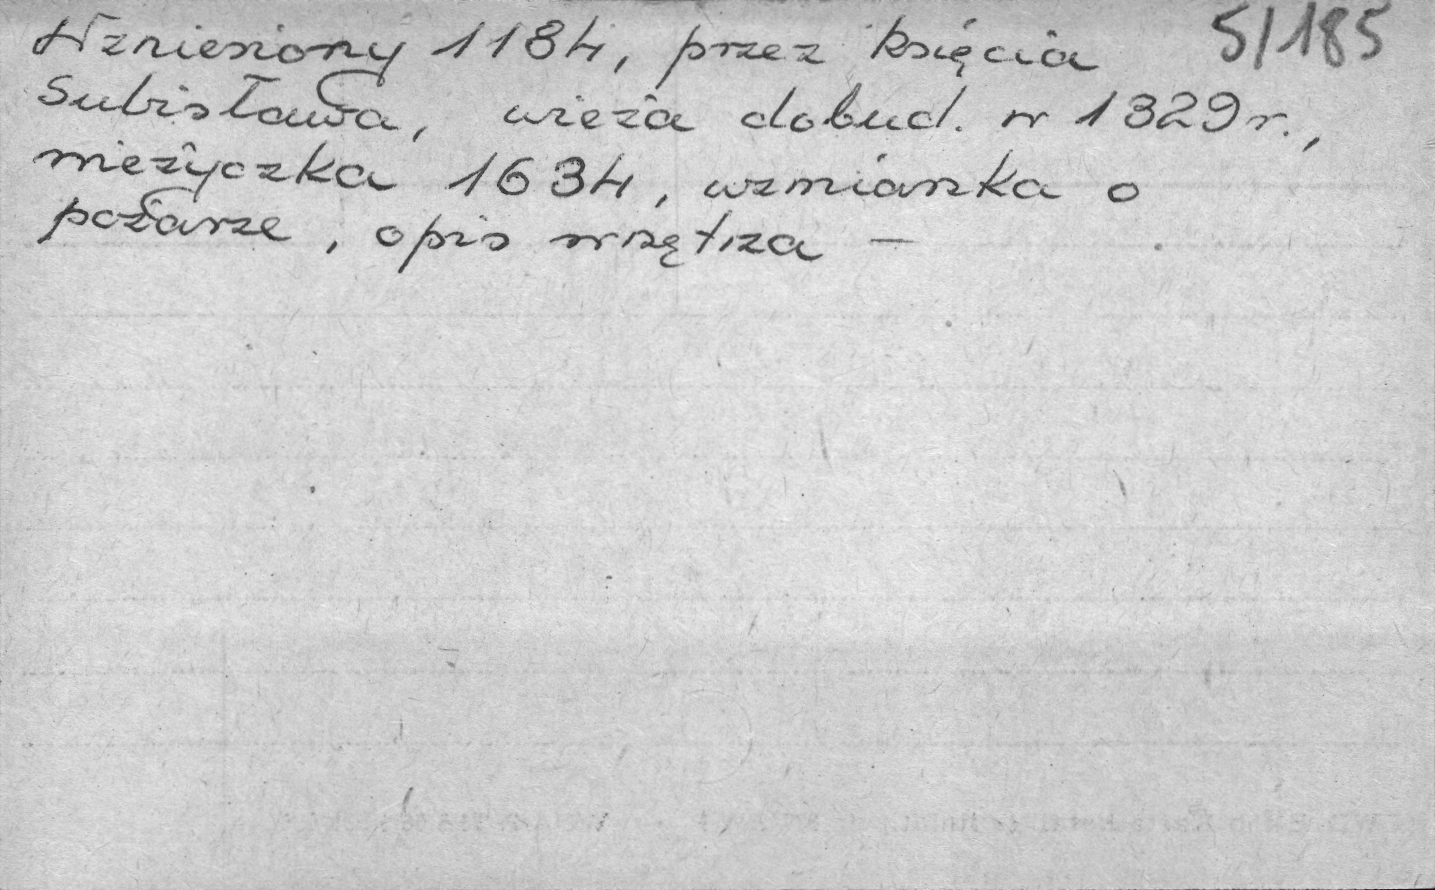 Wzniesiony 1184, przez księcia 5/185
Subisława, wieża dobud. w 1329 r.,
wieżyczka 1634, wzmianka o
pożarze, opis wnętrza –